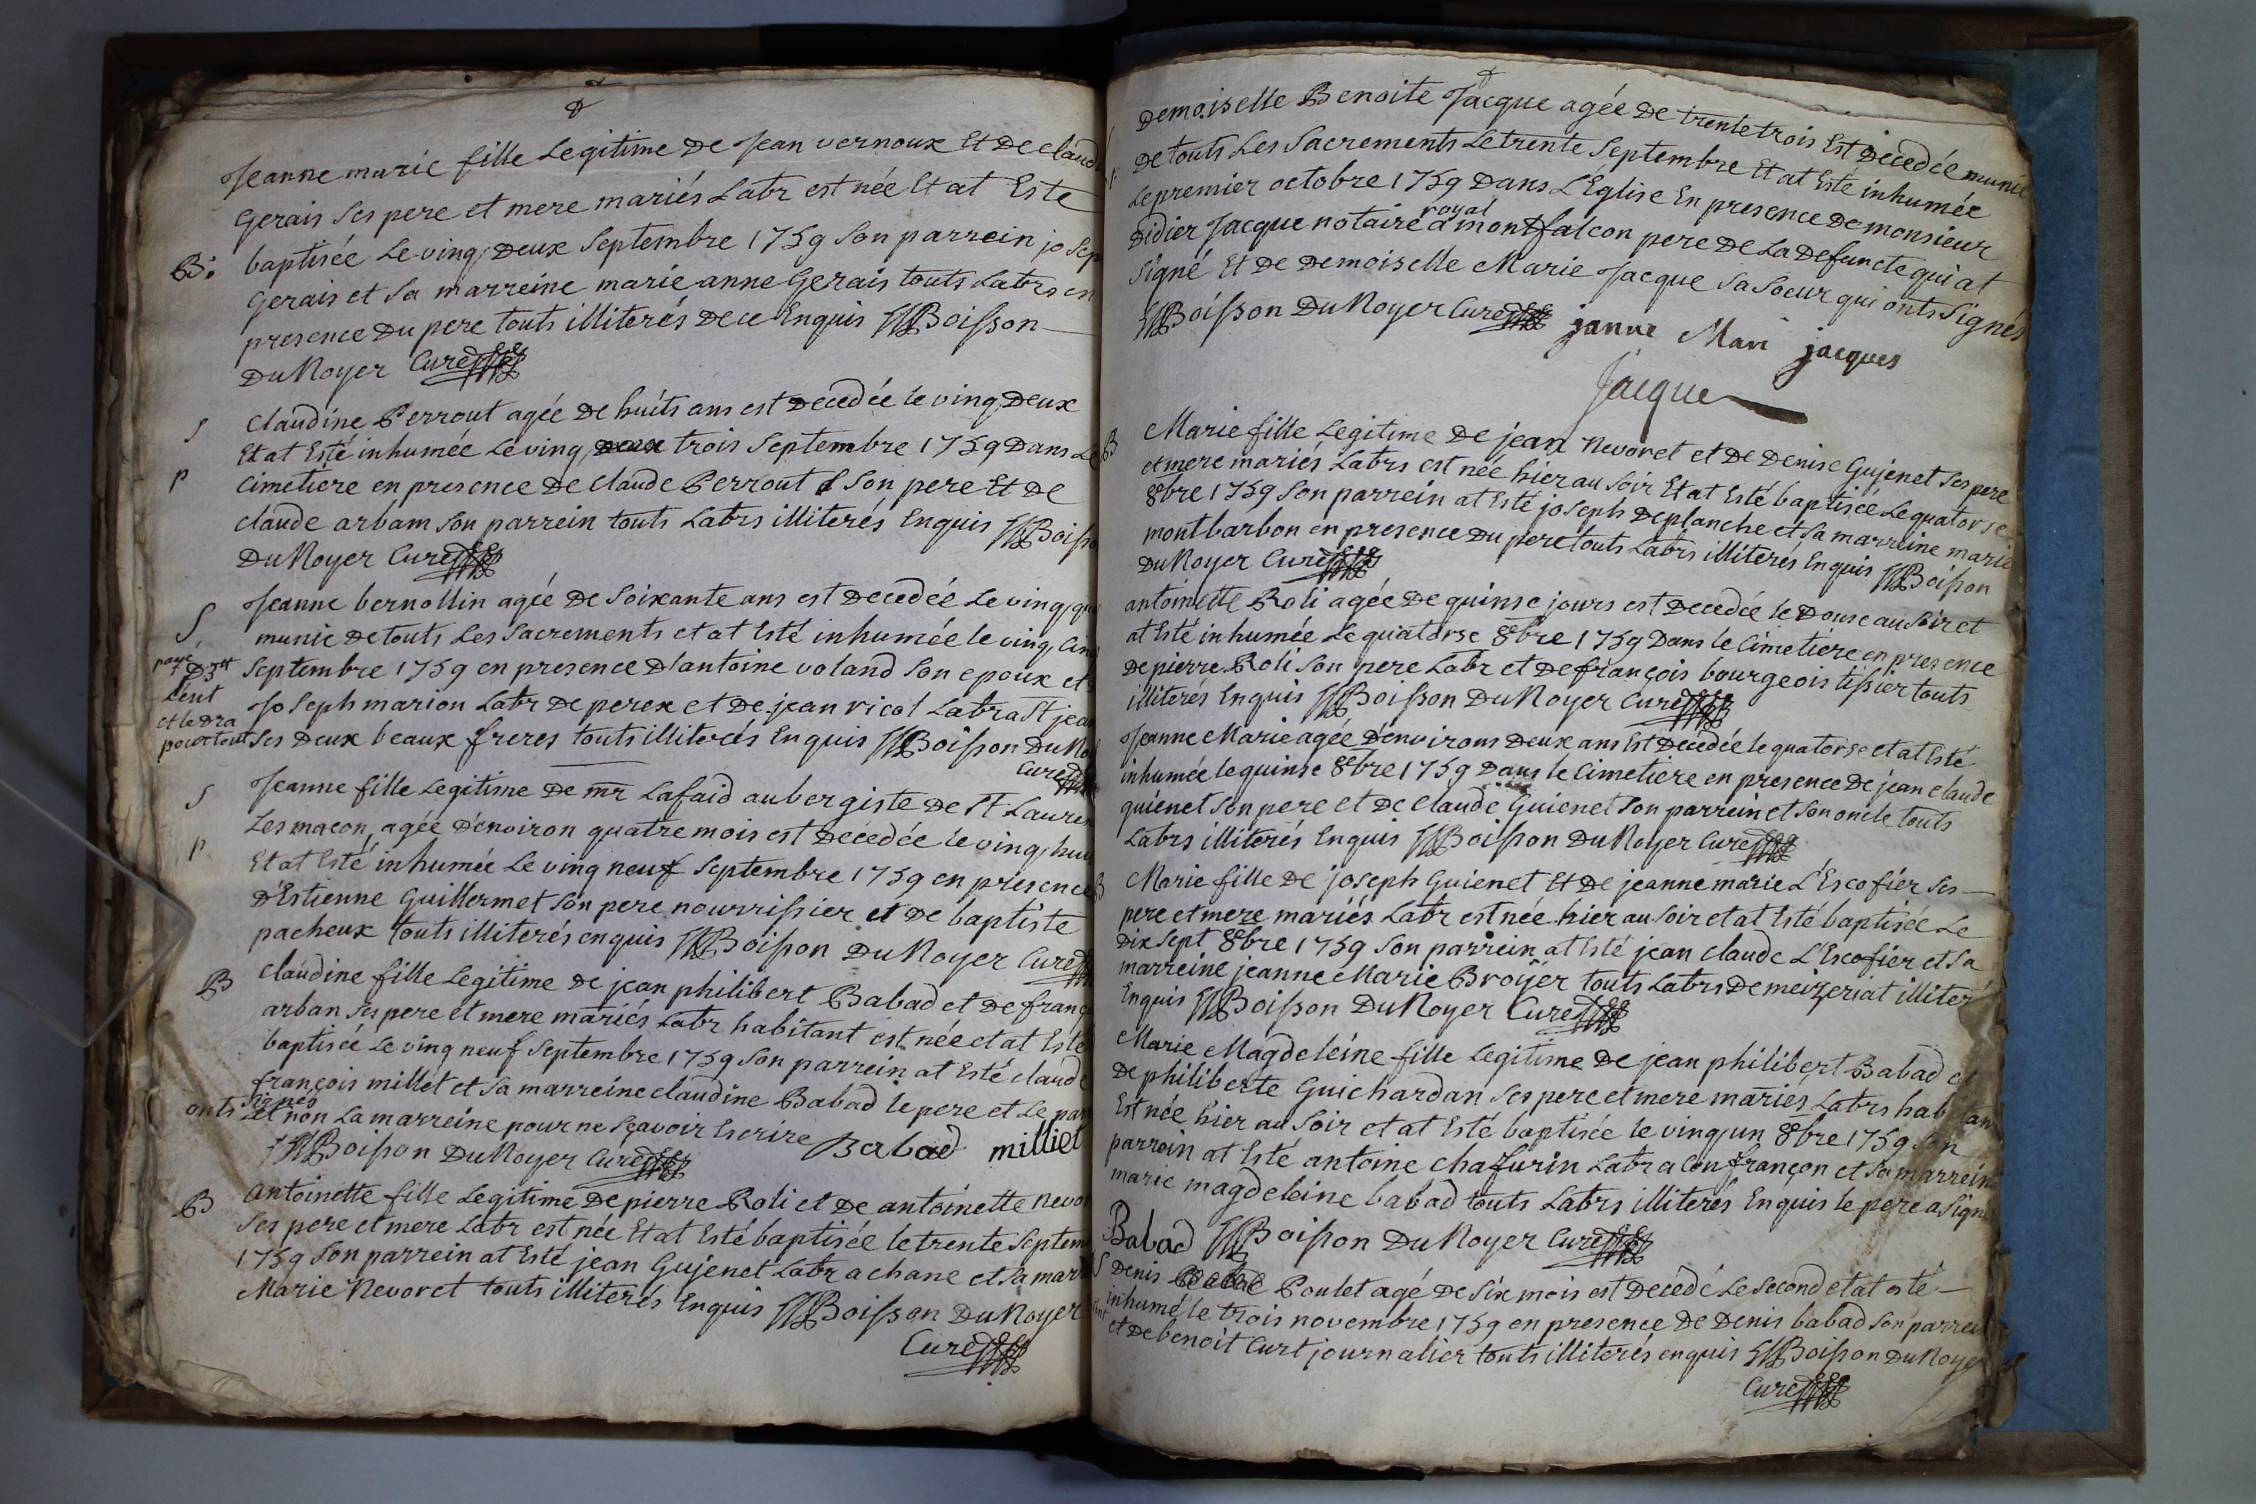 Jeanne marie fille Legitime De Jean vernoux Et De claud
Gerais Ses pere et mere mariés Labr est née Et at Este
B: baptisée Le ving, Deux Septembre 1759 Son parrein josep
Gerais et Sa marreine marie anne Gerais touts Labrs en
presence Du pere touts illiterés De ce Enquis Boisson
DuNoyer Curé
S Claudine Perrout agée De huits ans est Decedée le ving, Deux
Et at Esté inhumée Le ving, deux trois Septembre 1759 Dans Le
p Cimetiere en presence De Claude Perrout Son pere Et De
Claude arbam Son parrein touts Labrs illiterés Enquis Boisso
DuNoyer Curé
S Jeanne bernollin agée De Soixante ans est Decedée Le ving, qu
munie De touts Les Sacrements et at Esté inhumée le ving, Cinq
Septembre 1759 en presence D'antoine voland Son epoux et
Joseph marion Labr De perex et De jean ricol Labr a St jean
et le Dra
pour tout Ses Deux beaux freres touts illiterés Enquis Boisson DuNo
Curé
S Jeanne fille Legitime De mr Lafaid aubergiste De St Lauren
Les macon, agée D'environ quatre mois est Decedée le ving, hui
p Et at Esté inhumée Le ving neuf Septembre 1759 en presence
D'Estienne Guillermet Son pere nourrissier et De baptiste
pacheux touts illiterés enquis Boisson DuNoyer Curé
B Claudine fille Legitime De jean philibert Babad et De franç
arban Ses pere et mere mariés Labr habitant est née et at Esté
baptisée Le ving neuf Septembre 1759 Son parrein at Esté claude
françois millet et Sa marreine claudine Babad le pere et Le par
onts Signés et non La marreine pour ne Sçavoir Escrire Babad milliet
Boisson DuNoyer Curé
B Antoinette fille Legitime De pierre Roli et De antoinette Nevor
Ses pere et mere Labr est née Et at Esté baptisée le trente Septem
1759 Son parrein at Esté jean Gujenet Labr a chane et Sa marr
Marie Nevoret touts illiterés Enquis Boisson DuNoyer
Curé
Demoiselle Benoite Jacque agée De trente trois Est Decedée munie
De touts Les Sacrements Le trente Septembre Et at Esté inhumée
Le premier octobre 1759 Dans L'Eglise En presence De monsieur
Didier Jacque notaire royal a montfalcon pere De La Defuncte qui at
Signé Et De Demoiselle Marie Jacque Sa Soeur qui onts Signés
Boisson DuNoyer Curé janne Mari jacques
Jacque
B Marie fille Legitime De jean Nevoret et De Denise Gujenet Ses pere
et mere mariés Labrs est née hier au Soir Et at Esté baptisée Le quatorse
8bre 1759 Son parrein at Esté joseph Deplanche et Sa marreine marie
montbarbon en presence Du pere touts Labrs illiterés Enquis Boisson
DuNoyer Curé
antoinette Roli agée De quinse jours est Decedée le Douse au Soir et
at Esté inhumée Le quatorse 8bre 1759 Dans le Cimetiere en presence
De pierre Roli Son pere Labr et De françois bourgeois tissier touts
illiterés Enquis Boisson DuNoyer Curé
Jeanne Marie agée D'environs Deux ans Est Decedée le quatorse et at Esté
inhumée le quinse 8bre 1759 Dans le Cimetiere en presence De jean claude
guienet Son pere et De claude Guienet Son parrein et Son oncle touts
Labrs illiterés Enquis Boisson DuNoyer Curé
B Marie fille De joseph Guienet Et De jeanne marie L'Escofier Ses
pere et mere mariés Labr est née hier au Soir et at Esté baptisée Le
Dix Sept 8bre 1759 Son parrein at Esté jean claude L'Escofier et Sa
marreine jeanne Marie Broÿer touts Labrs De meizeriat illiter
Enquis Boisson DuNoyer Curé
Marie Magdeleine fille Legitime De jean philibert Babad et
De philiberte Guichardan Ses pere et mere mariés Labrs habitan
Est née hier au Soir et at Esté baptisée le ving, un 8bre 1759 Son
parrein at Esté antoine chafurin Labr a Confrançon et Sa marreine
marie magdeleine babad touts Labrs illiterés Enquis le pere a Signé
Babad Boisson DuNoyer Curé
S Denis Poulet agé De Six mois est Decedé Le Second et at esté
inhumé le trois novembre 1759 en presence De Denis babad Son parrein
et De benoit Curt journalier touts illiterés enquis Boisson DuNoyer
Curé